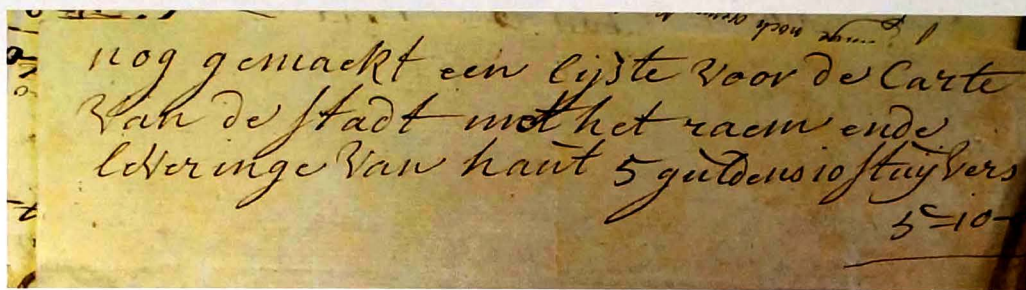 nog gemaekt een lijste voor de Carte
van de stadt met het raem ende
leveringe van haut 5 guldens 10 stuijvers
5=10-